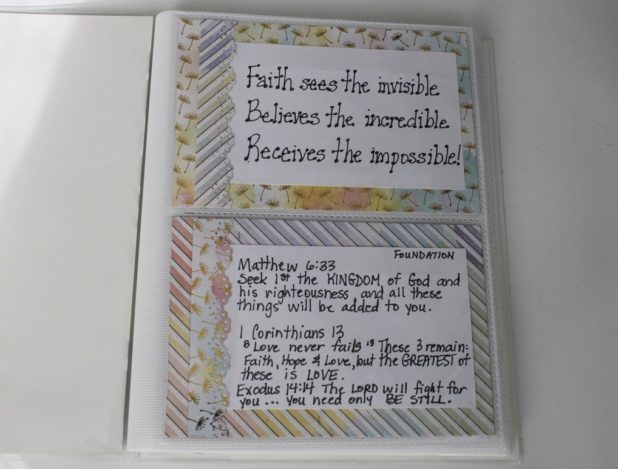 Faith sees the invisible
Believes the incredible
Receives the impossible!
FOUNDATION
Matthew 6:33
Seek 1st the KINGDOM of God and
his righteousness and all these
things will be added to you.
1 Corinthians 13
8 Love never fails 13 These 3 remain:
Faith, Hope & Love, but the GREATEST of
these is LOVE.
Exodus 14:14 The LORD will fight for
you... you need only BE STILL.